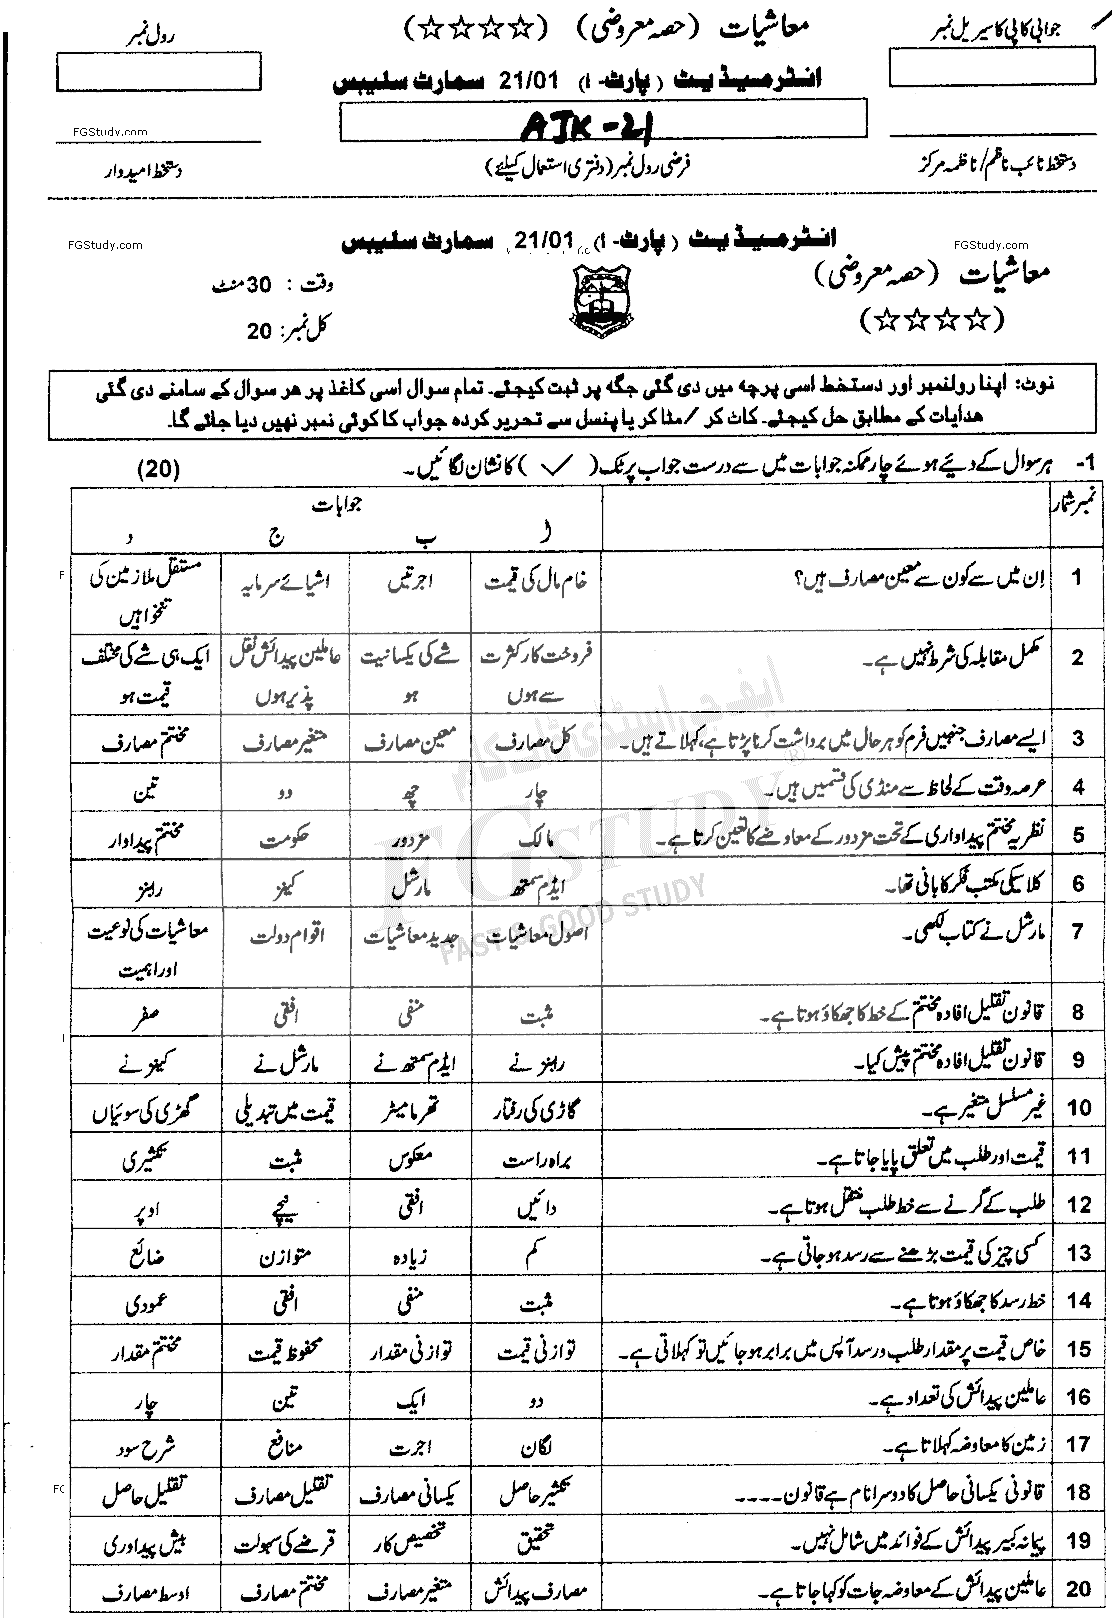 جوابی کاپی کا سیریل نمبر
معاشیات (حصہ معروضی) (☆☆☆☆)
رول نمبر
انٹرمیڈیٹ (پارٹ- I) 21/01 سمارٹ سلیبس
AJK-21
FGStudy.com
دستخط نائب ناظم/ناظمہ مرکز
فرضی رول نمبر (دفتری استعمال کیلئے)
دستخط امیدوار
FGStudy.com
انٹرمیڈیٹ (پارٹ- I) 21/01 سمارٹ سلیبس
FGStudy.com
معاشیات (حصہ معروضی)
وقت : 30 منٹ
(☆☆☆☆)
کل نمبر: 20
نوٹ: اپنا رولنمبر اور دستخط اسی پرچہ میں دی گئی جگہ پر ثبت کیجئے۔ تمام سوال اسی کاغذ پر ھر سوال کے سامنے دی گئی
ھدایات کے مطابق حل کیجئے۔ کاٹ کر /مٹا کر یا پنسل سے تحریر کردہ جواب کا کوئی نمبر نہیں دیا جائے گا۔
1- ہر سوال کے دیئے ہوئے چار ممکنہ جوابات میں سے درست جواب پر ٹِک (✓) کا نشان لگائیں۔ (20)
نمبر شمار جوابات
ا ب ج د
1 اِن میں سے کون سے معین مصارف ہیں؟ خام مال کی قیمت اجرتیں اشیائے سرمایہ مستقل ملازمین کی
تنخواہیں
2 مکمل مقابلہ کی شرط نہیں ہے۔ فروخت کار کثرت شے کی یکسانیت عاملین پیدائش نقل ایک ہی شے کی مختلف
سے ہوں ہو پذیر ہوں قیمت ہو
3 ایسے مصارف جنہیں فرم کو ہر حال میں برداشت کرنا پڑتا ہے، کہلاتے ہیں۔ کل مصارف معین مصارف متغیر مصارف مختتم مصارف
4 عرصہ وقت کے لحاظ سے منڈی کی قسمیں ہیں۔ چار چھ دو تین
5 نظریہ مختتم پیداواری کے تحت مزدور کے معاوضے کا تعین کرتا ہے۔ مالک مزدور حکومت مختتم پیداوار
6 کلاسیکی مکتب فکر کا بانی تھا۔ ایڈم سمتھ مارشل کینز رابنز
7 مارشل نے کتاب لکھی۔ اصول معاشیات جدید معاشیات اقوام دولت معاشیات کی نوعیت
اور اہمیت
8 قانون تقلیل افادہ مختتم کے خط کا جھکاؤ ہوتا ہے۔ مثبت منفی افقی صفر
9 قانون تقلیل افادہ مختتم پیش کیا۔ رابنز نے ایڈم سمتھ نے مارشل نے کینز نے
10 غیر مسلسل متغیر ہے۔ گاڑی کی رفتار تھرمامیٹر قیمت میں تبدیلی گھڑی کی سوئیاں
11 قیمت اور طلب میں تعلق پایا جاتا ہے۔ براہ راست معکوس مثبت تکثیری
12 طلب کے گرنے سے خط طلب منتقل ہوتا ہے۔ دائیں افقی نیچے اوپر
13 کسی چیز کی قیمت بڑھنے سے رسد ہو جاتی ہے۔ کم زیادہ متوازن ضائع
14 خط رسد کا جھکاؤ ہوتا ہے۔ مثبت منفی افقی عمودی
15 خاص قیمت پر مقدار طلب و رسد آپس میں برابر ہو جائیں تو کہلاتی ہے۔ توازنی قیمت توازنی مقدار محفوظ قیمت مختتم مقدار
16 عاملین پیدائش کی تعداد ہے۔ دو ایک تین چار
17 زمین کا معاوضہ کہلاتا ہے۔ لگان اجرت منافع شرح سود
18 قانونی یکسانی حاصل کا دوسرا نام ہے قانون ---- تکثیر حاصل یکسانی مصارف تقلیل مصارف تقلیل حاصل
19 پیمانہ کبیر پیدائش کے فوائد میں شامل نہیں۔ تحقیق تخصیص کار قرضے کی سہولت بیش پیداوری
20 عاملین پیدائش کے معاوضہ جات کو کہا جاتا ہے۔ مصارف پیدائش متغیر مصارف مختتم مصارف اوسط مصارف
ایف جی اسٹڈی ڈاٹ کام
FGSTUDY
FAST & GOOD STUDY